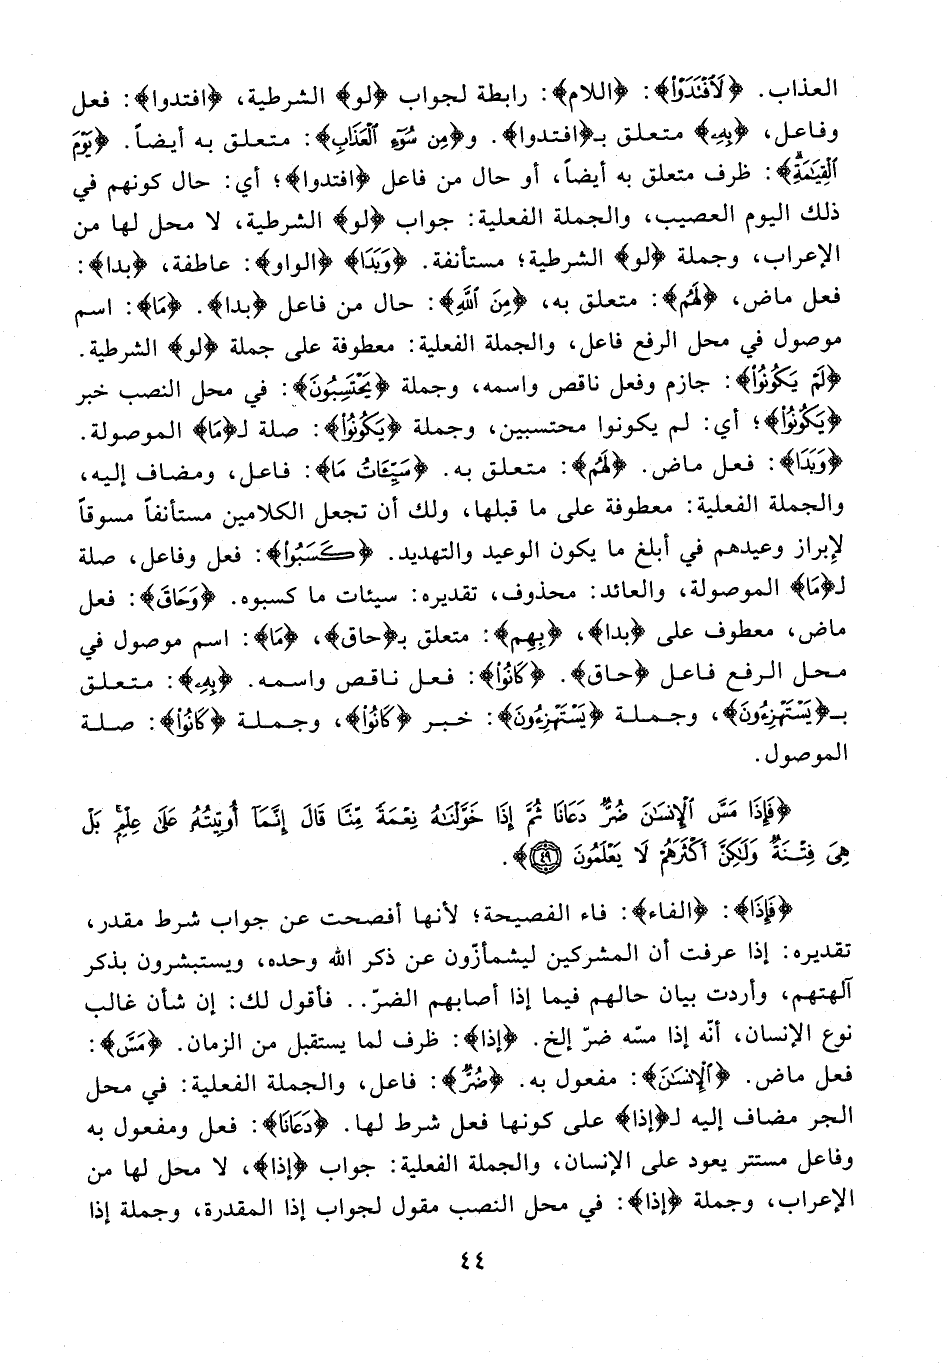 العذاب. ﴿لَافْتَدَوْا﴾: ﴿اللام﴾: رابطة لجواب ﴿لو﴾ الشرطية، ﴿افتدوا﴾: فعل
وفاعل، ﴿بِهِ﴾ متعلق بـ﴿افتدوا﴾. و﴿مِن سُوٓءِ ٱلْعَذَابِ﴾: متعلق به أيضاً. ﴿يَوْمَ
ٱلْقِيَٰمَةِۚ﴾: ظرف متعلق به أيضاً، أو حال من فاعل ﴿افتدوا﴾؛ أي: حال كونهم في
ذلك اليوم العصيب، والجملة الفعلية: جواب ﴿لو﴾ الشرطية، لا محل لها من
الإعراب، وجملة ﴿لو﴾ الشرطية؛ مستأنفة. ﴿وَبَدَا﴾ ﴿الواو﴾: عاطفة، ﴿بدا﴾:
فعل ماض، ﴿لَهُم﴾: متعلق به، ﴿مِنَ ٱللَّهِ﴾: حال من فاعل ﴿بدا﴾. ﴿مَا﴾: اسم
موصول في محل الرفع فاعل، والجملة الفعلية: معطوفة على جملة ﴿لو﴾ الشرطية.
﴿لَمْ يَكُونُوا۟﴾: جازم وفعل ناقص واسمه، وجملة ﴿يَحْتَسِبُونَ﴾: في محل النصب خبر
﴿يَكُونُوا۟﴾؛ أي: لم يكونوا محتسبين، وجملة ﴿يَكُونُوا۟﴾: صلة لـ﴿مَا﴾ الموصولة.
﴿وَبَدَا﴾: فعل ماض. ﴿لَهُمْ﴾: متعلق به. ﴿سَيِّـَٔاتُ مَا﴾: فاعل، ومضاف إليه،
والجملة الفعلية: معطوفة على ما قبلها، ولك أن تجعل الكلامين مستأنفاً مسوقاً
لإبراز وعيدهم في أبلغ ما يكون الوعيد والتهديد. ﴿كَسَبُوا۟﴾: فعل وفاعل، صلة
لـ﴿مَا﴾ الموصولة، والعائد: محذوف، تقديره: سيئات ما كسبوه. ﴿وَحَاقَ﴾: فعل
ماض، معطوف على ﴿بدا﴾، ﴿بِهِم﴾: متعلق بـ﴿حاق﴾، ﴿مَا﴾: اسم موصول في
محل الرفع فاعل ﴿حاق﴾. ﴿كَانُوا۟﴾: فعل ناقص واسمه. ﴿بِهِۦ﴾: متعلق
بـ﴿يَسْتَهْزِءُونَ﴾، وجملة ﴿يَسْتَهْزِءُونَ﴾: خبر ﴿كَانُوا۟﴾، وجملة ﴿كَانُوا۟﴾: صلة
الموصول.
﴿فَإِذَا مَسَّ ٱلْإِنسَٰنَ ضُرٌّ دَعَانَا ثُمَّ إِذَا خَوَّلْنَٰهُ نِعْمَةً مِّنَّا قَالَ إِنَّمَآ أُوتِيتُهُۥ عَلَىٰ عِلْمٍۭ ۚ بَلْ
هِىَ فِتْنَةٌ وَلَٰكِنَّ أَكْثَرَهُمْ لَا يَعْلَمُونَ ۝٤٩﴾.
﴿فَإِذَا﴾: ﴿الفاء﴾: فاء الفصيحة؛ لأنها أفصحت عن جواب شرط مقدر،
تقديره: إذا عرفت أن المشركين ليشمأزّون عن ذكر الله وحده، ويستبشرون بذكر
آلهتهم، وأردت بيان حالهم فيما إذا أصابهم الضرّ.. فأقول لك: إن شأن غالب
نوع الإنسان، أنّه إذا مسّه ضرّ إلخ. ﴿إذا﴾: ظرف لما يستقبل من الزمان. ﴿مَسَّ﴾:
فعل ماض. ﴿ٱلْإِنسَٰنَ﴾: مفعول به. ﴿ضُرٌّ﴾: فاعل، والجملة الفعلية: في محل
الجر مضاف إليه لـ﴿إذا﴾ على كونها فعل شرط لها. ﴿دَعَانَا﴾: فعل ومفعول به
وفاعل مستتر يعود على الإنسان، والجملة الفعلية: جواب ﴿إذا﴾، لا محل لها من
الإعراب، وجملة ﴿إذا﴾: في محل النصب مقول لجواب إذا المقدرة، وجملة إذا
٤٤